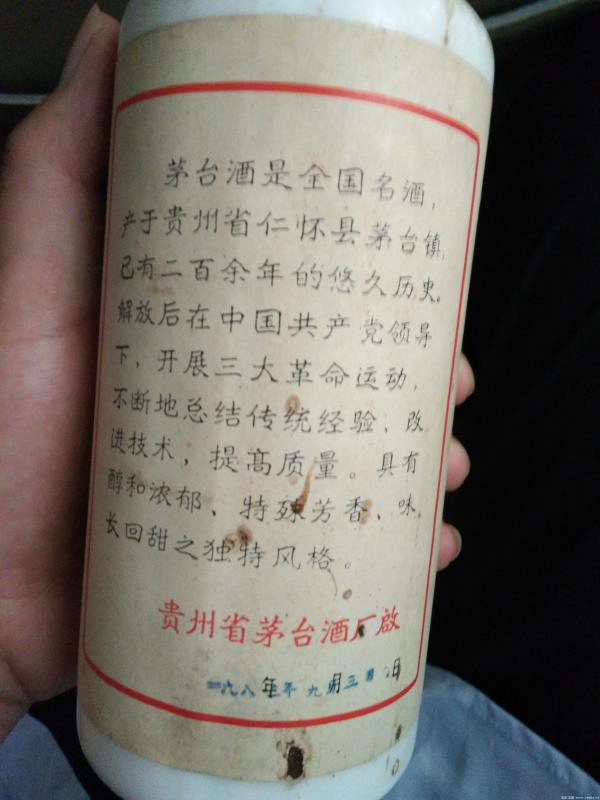 茅台酒是全国名酒，
产于贵州省仁怀县茅台镇，
已有二百余年的悠久历史。
解放后在中国共产党领导
下，开展三大革命运动，
不断地总结传统经验、改
进技术，提高质量。具有
醇和浓郁、特殊芳香、味
长回甜之独特风格。
贵州省茅台酒厂启
一九八年年九月三日